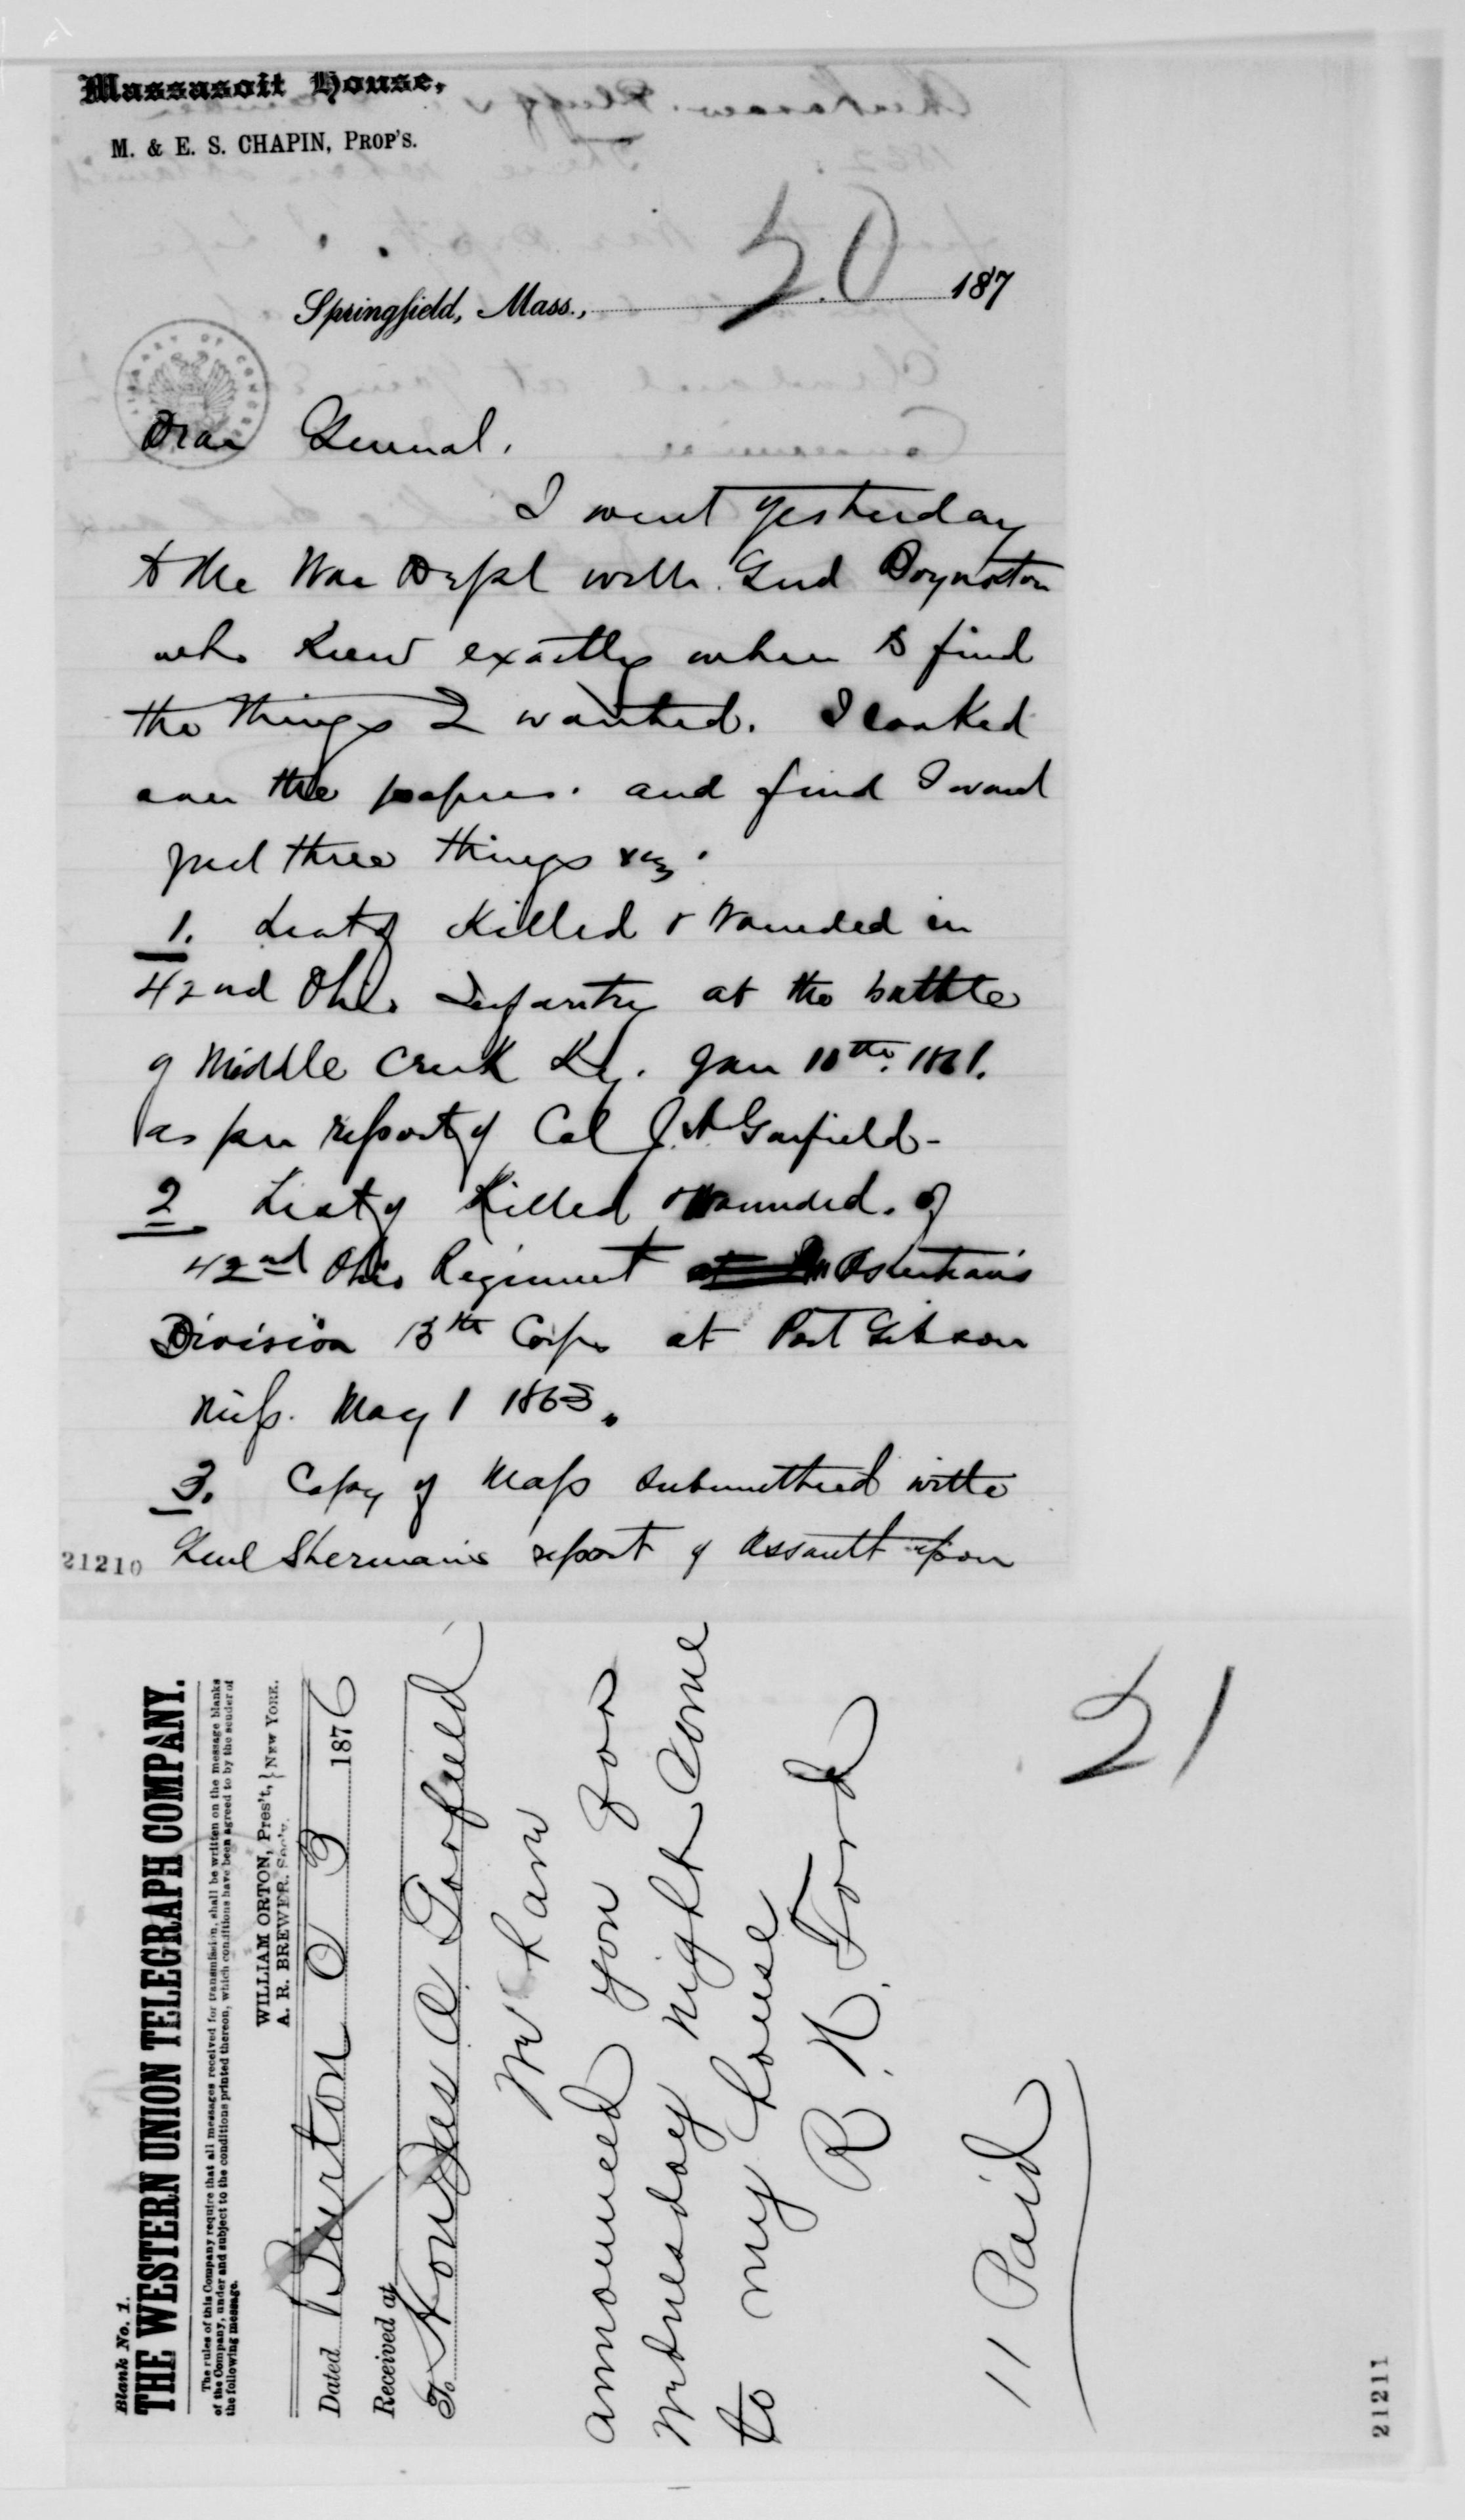 Massasoit House,
M. & E. S. CHAPIN, PROP'S.
50
Springfield, Mass., 187
LIBRARY OF CONGRESS
Dear General.
I went yesterday
to the War Dept with Genl Boynton
who knew exactly where to find
the things I wanted. I looked
over the papers. and find I want
just three things viz.
1. List of Killed & Wounded in
42nd Ohio Infantry at the battle
of Middle Creek Ky. Jan 10th 1861.
as per report of Col J. A Garfield-
2 List of Killed & Wounded. of
42nd Ohio Regiment at Osterhaus
Division 13th Corps at Port Gibson
Miss. May 1 1863.
3. Copy of Map submitted with
Genl Shermans report of Assault upon
21210
Blank No. 1.
THE WESTERN UNION TELEGRAPH COMPANY.
The rules of this Company require that all messages received for transmission, shall be written on the message blanks
of the Company, under and subject to the conditions printed thereon, which conditions have been agreed to by the sender of
the following message.
WILLIAM ORTON, Pres't, } NEW YORK.
A. R. BREWER, Sec'y.
Dated Burton O 3 1876
Received at
To Hon Jas A Garfield
We have
announced you for
Wednesday night come
to my house
R. N. Ford
11 Paid
51
21211